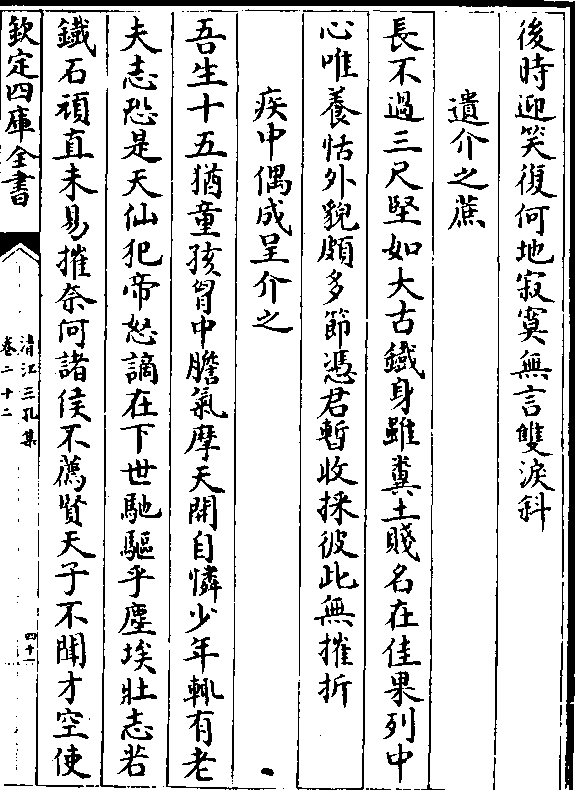 後時迎笑復何地寂寞無言雙淚斜
遺介之蔗
長不過三尺堅如大古鐵身雖糞土賤名在佳果列中
心唯養恬外貌頗多節憑君暫收採彼此無摧折
疾中偶成呈介之
吾生十五猶童孩胷中膽氣摩天開自憐少年輒有老
夫志恐是天仙犯帝怒謫在下世馳驅乎塵埃壯志若
鐵石頑直未易摧奈何諸侯不薦賢天子不聞才空使
欽定四庫全書
清江三孔集
卷二十二
四十一